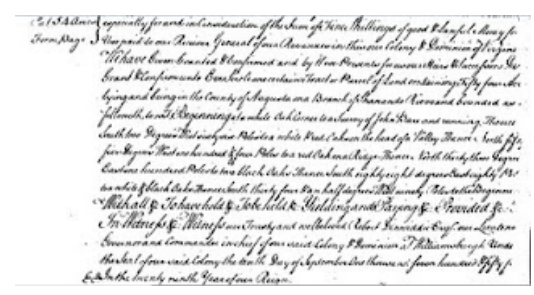 Pat 54 Acres especially for and in Consideration of the Sum of Five Shillings of good & Lawful Money for
Form Page Use paid to our Receiver General of our Revenues in this our Colony & Dominion of Virginia
We have Given Granted & Confirmed and by these Presents for us our Heirs & Successors Do
Grand & Confirm unto one certain Tract or Parcel of Land containing Fifty four Acres
lying and being in the County of Augusta on a Branch of Shanando River and bounded as
followeth, to wit, Beginning at a white Oak Corner to a Survey of John and running Thence
South two Degrees West sixty six Poles to a white & red Oak on the head of a Valley Thence North fifty
five Degrees West one hundred & four Poles to a red Oak on a Ridge Thence North thirty three Degrees
East one hundred Poles to two black Oaks Thence South eighty eight degrees East eighty Poles
to a white & black Oaks Thence South thirty four & an half degrees West ninety Poles to the Beginning
With all & To have hold & To be held & Yielding and Paying & Provided &c
In Witness & Witness our Trusty and welbeloved Robert Dinwiddie Esqr our Lieutenant
Governor and Commander in chief of our said Colony & Dominion at Williamsburgh Under
the Seal of our said Colony the tenth Day of September One thousand seven hundred & fifty
In the twenty ninth Year of our Reign